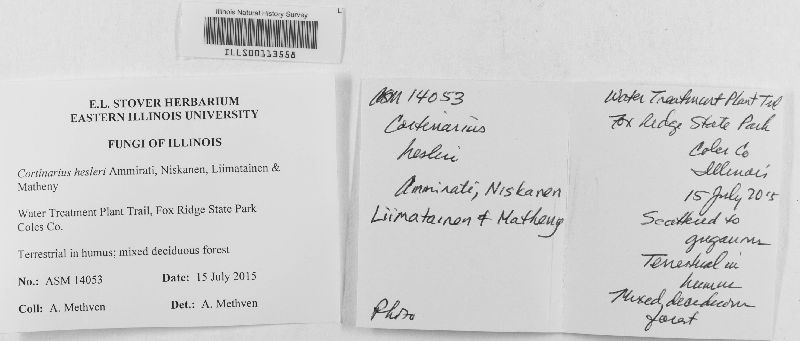 Illinois Natural History Survey
ILLS00113556
E.L. STOVER HERBARIUM
EASTERN ILLINOIS UNIVERSITY
FUNGI OF ILLINOIS
Cortinarius hesleri Ammirati, Niskanen, Liimatainen &
Matheny
Water Treatment Plant Trail, Fox Ridge State Park
Coles Co.
Terrestrial in humus; mixed deciduous forest
No.: ASM 14053 Date: 15 July 2015
Coll: A. Methven Det.: A. Methven
ASM 14053
Cortinarius
hesleri
Ammirati, Niskanen
Liimatainen & Matheny
Photo
Water Treatment Plant Trl
Fox Ridge State Park
Coles Co
Illinois
15 July 2015
Scattered to
gregarious
Terrestrial in
humus
Mixed deciduous
forest